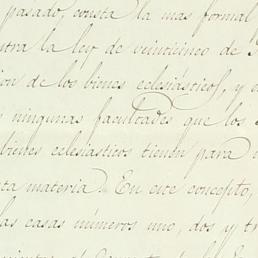 pasado, consta la mas formal
ntra la ley de veinticinco de
ion de los bienes eclesiásticos, y
s ningunas facultades que los
bientes eclesiasticos tienen para
ta materia. En este concepto,
las casas números uno, dos y tr